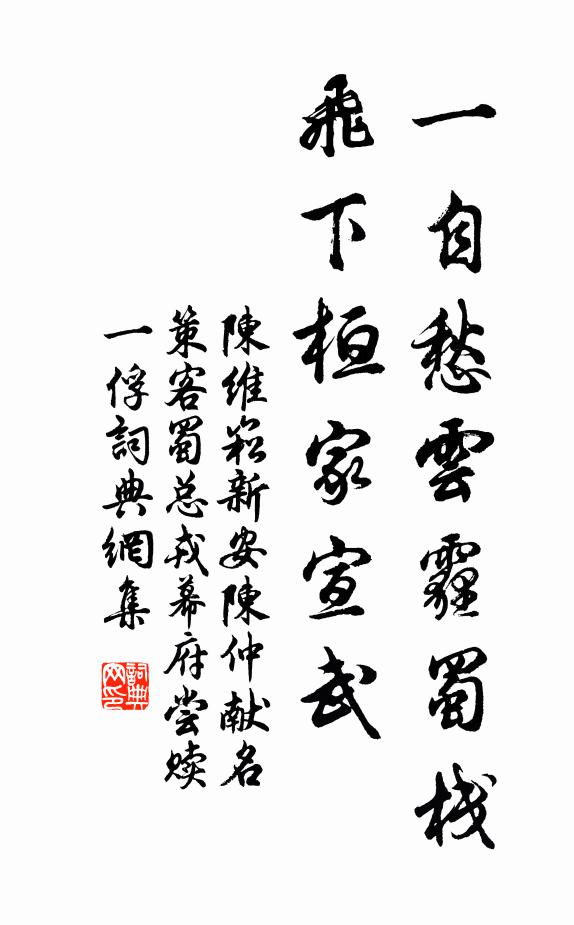 一自愁雲霾蜀栈
飛下桓家宣武
陳維崧新安陳仲献名
策客蜀总戎幕府尝赎
一俘詞典網集
詞典网印